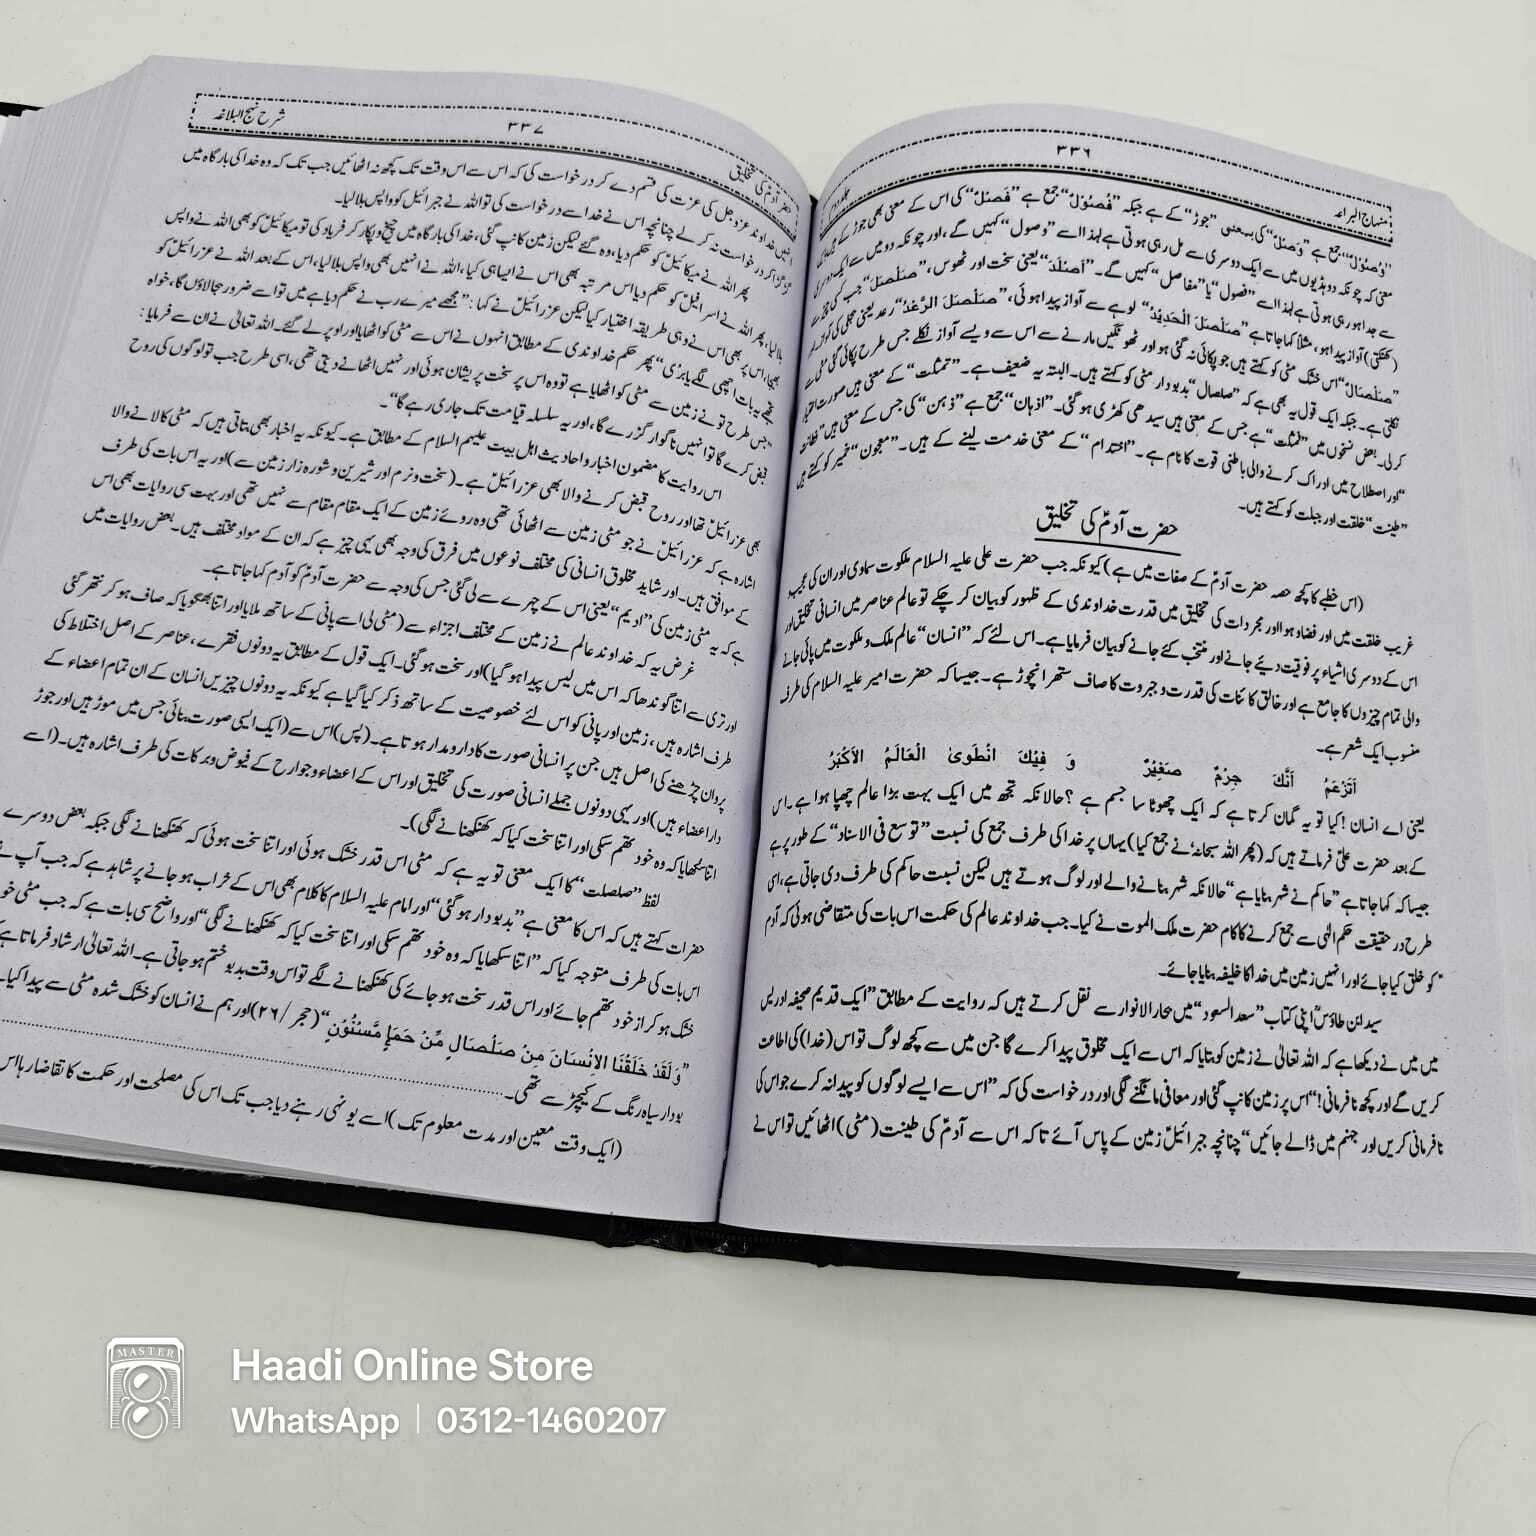 منہاج البراعہ
٣٣٦
"وُصُوْلُ" جمع ہے "وَصْلٌ" کی بمعنی "جوڑ" کے ہے جبکہ "فُصُوْلٌ" جمع ہے "فَصْلٌ" کی اس کے معنی بھی جوڑ کے ہیں
معنی کہ چونکہ دو ہڈیوں میں سے ایک دوسری سے مل رہی ہوتی ہے لہذا اسے "وصول" کہیں گے، اور چونکہ دو میں سے ایک دوسری
سے جدا ہو رہی ہوتی ہے لہذا اسے "فصول" یا "مفاصل" کہیں گے۔ "اَصْلَدَ" یعنی سخت اور ٹھوس، "صَلْصَلَ" جب کی چیز سے
(کھنکتی) آواز پیدا ہو، مثلاً کہا جاتا ہے "صَلْصَلَ الْحَدِیْدُ" لوہے سے آواز پیدا ہوئی، "صَلْصَلَ الرَّعْدُ" رعد یعنی بجلی کی کڑک
"صَلْصَالٌ" اس خشک مٹی کو کہتے ہیں جو پکائی نہ گئی ہو اور ٹھونگیں مارنے سے اس سے ویسے آواز نکلے جس طرح پکائی گئی مٹی سے
نکلتی ہے۔ جبکہ ایک قول یہ بھی ہے کہ "صلصال" بدبودار مٹی کو کہتے ہیں۔ البتہ یہ ضعیف ہے۔ "تمثلت" کے معنی ہیں صورت اختیار
کر لی۔ بعض نسخوں میں "مُثّلت" ہے جس کے معنی ہیں سیدھی کھڑی ہو گئی۔ "اذہان" جمع ہے "ذہن" کی جس کے معنی ہیں "فطانت
" اور اصطلاح میں ادراک کرنے والی باطنی قوت کا نام ہے۔ "اختدام" کے معنی خدمت لینے کے ہیں۔ "معجون" خمیر کو کہتے ہیں
"طینت" خلقت اور جبلت کو کہتے ہیں۔
حضرت آدمؑ کی تخلیق
(اس خطبے کا کچھ حصہ حضرت آدمؑ کے صفات میں ہے) کیونکہ جب حضرت علی علیہ السلام ملکوت سماوی اور ان کی عجیب و
غریب خلقت میں اور فضا و ہوا اور مجردات کی تخلیق میں قدرت خداوندی کے ظہور کو بیان کر چکے تو عالم عناصر میں انسانی تخلیق اور
اس کے دوسری اشیاء پر فوقیت دیئے جانے اور منتخب کئے جانے کو بیان فرمایا ہے۔ اس لئے کہ "انسان" عالم ملک و ملکوت میں پائی جانے
والی تمام چیزوں کا جامع ہے اور خالق کائنات کی قدرت و جبروت کا صاف ستھرا نچوڑ ہے۔ جیسا کہ حضرت امیر علیہ السلام کی طرف
منسوب ایک شعر ہے۔
اَتَزْعَمُ اَنَّکَ جِرْمٌ صَغِیْرٌ وَ فِیْکَ انْطَویٰ الْعَالَمُ الاَکْبَرُ
یعنی اے انسان! کیا تو یہ گمان کرتا ہے کہ ایک چھوٹا سا جسم ہے؟ حالانکہ تجھ میں ایک بہت بڑا عالم چھپا ہوا ہے۔ اس
کے بعد حضرت علیؑ فرماتے ہیں کہ (پھر اللہ سبحانہ نے جمع کیا) یہاں پر خدا کی طرف جمع کی نسبت "توسع فی الاسناد" کے طور پر ہے
جیسا کہ کہا جاتا ہے "حاکم نے شہر بنایا ہے" حالانکہ شہر بنانے والے اور لوگ ہوتے ہیں لیکن نسبت حاکم کی طرف دی جاتی ہے، اسی
طرح در حقیقت حکم الٰہی سے جمع کرنے کا کام حضرت ملک الموت نے کیا۔ جب خداوند عالم کی حکمت اس بات کی متقاضی ہوئی کہ آدم
کو خلق کیا جائے اور انہیں زمین میں خدا کا خلیفہ بنایا جائے۔
سید ابن طاؤسؒ اپنی کتاب "سعد السعود" میں بحار الانوار سے نقل کرتے ہیں کہ روایت کے مطابق "ایک قدیم صحیفہ ادریس
میں میں نے دیکھا ہے کہ اللہ تعالیٰ نے زمین کو بتایا کہ اس سے ایک مخلوق پیدا کرے گا جن میں سے کچھ لوگ تو اس (خدا) کی اطاعت
کریں گے اور کچھ نافرمانی!" اس پر زمین کانپ گئی اور معافی مانگنے لگی اور درخواست کی کہ "اس سے ایسے لوگوں کو پیدا نہ کرے جو اس کی
نافرمانی کریں اور جہنم میں ڈالے جائیں" چنانچہ جبرائیلؑ زمین کے پاس آئے تاکہ اس سے آدمؑ کی طینت (مٹی) اٹھائیں تو اس نے
حضرت آدمؑ کی تخلیق
٣٣٧
شرح نہج البلاغہ
انہیں خداوند عزوجل کی عزت کی قسم دے کر درخواست کی کہ اس سے اس وقت تک کچھ نہ اٹھائیں جب تک کہ وہ خدا کی بارگاہ میں
گڑگڑا کر درخواست نہ کر لے چنانچہ اس نے خدا سے درخواست کی تو اللہ نے جبرائیل کو واپس بلا لیا۔
پھر اللہ نے میکائیلؑ کو حکم دیا، وہ گئے لیکن زمین کانپ گئی، خدا کی بارگاہ میں چیخ و پکار کر فریاد کی تو میکائیلؑ کو بھی اللہ نے واپس
بلا لیا، پھر اللہ نے اسرافیلؑ کو حکم دیا اس مرتبہ بھی اس نے ایسا ہی کیا، اللہ نے انہیں بھی واپس بلا لیا، اس کے بعد اللہ نے عزرائیلؑ کو
بھیجا، اس پر بھی اس نے وہی طریقہ اختیار کیا لیکن عزرائیلؑ نے کہا: "مجھے میرے رب نے حکم دیا ہے میں تو اسے ضرور بجا لاؤں گا، خواہ
تجھے یہ بات اچھی لگے یا بری" پھر حکم خداوندی کے مطابق انہوں نے اس سے مٹی کو اٹھایا اور اوپر لے گئے۔ اللہ تعالیٰ نے ان سے فرمایا:
"جس طرح تو نے زمین سے مٹی کو اٹھایا ہے تو وہ اس پر سخت پریشان ہوئی اور نہیں اٹھانے دیتی تھی، اسی طرح جب تو لوگوں کی روح
قبض کرے گا تو انہیں ناگوار گزرے گا، اور یہ سلسلہ قیامت تک جاری رہے گا"۔
اس روایت کا مضمون اخبار و احادیث اہل بیت علیہم السلام کے مطابق ہے۔ کیونکہ یہ اخبار بھی بتاتی ہیں کہ مٹی کا لانے والا
بھی عزرائیلؑ تھا اور روح قبض کرنے والا بھی عزرائیلؑ ہے۔ (سخت و نرم اور شیریں و شورہ زار زمین سے) اور یہ اس بات کی طرف
اشارہ ہے کہ عزرائیلؑ نے جو مٹی زمین سے اٹھائی تھی وہ روئے زمین کے ایک مقام سے نہیں تھی اور بہت سی روایات بھی اس
کے موافق ہیں۔ اور شاید مخلوق انسانی کی مختلف نوعوں میں فرق کی وجہ بھی یہی چیز ہے کہ ان کے مواد مختلف ہیں۔ بعض روایات میں
ہے کہ یہ مٹی زمین کی "ادیم" یعنی اس کے چہرے سے لی گئی جس کی وجہ سے حضرت آدمؑ کو آدم کہا جاتا ہے۔
غرض یہ کہ خداوند عالم نے زمین کے مختلف اجزاء سے (مٹی لی اسے پانی کے ساتھ ملایا اور اتنا بھگویا کہ صاف ہو کر نتھر گئی
اور تری سے اتنا گوندھا کہ اس میں لیس پیدا ہو گیا) اور سخت ہو گئی۔ ایک قول کے مطابق یہ دونوں فقرے، عناصر کے اصل اختلاط کی
طرف اشارہ ہیں، زمین اور پانی کو اس لئے خصوصیت کے ساتھ ذکر کیا گیا ہے کیونکہ یہ دونوں چیزیں انسان کے ان تمام اعضاء کے
پروان چڑھنے کی اصل ہیں جن پر انسانی صورت کا دارومدار ہوتا ہے۔ (پس) اس سے (ایک ایسی صورت بنائی جس میں موڑ ہیں اور جوڑ
دار اعضاء ہیں) اور یہی دونوں جملے انسانی صورت کی تخلیق اور اس کے اعضاء و جوارح کے فیوض و برکات کی طرف اشارہ ہیں۔ (اسے
اتنا سکھایا کہ وہ خود تھم سکی اور اتنا سخت کیا کہ کھنکھنانے لگی)۔
لفظ "صلصلت" کا ایک معنی تو یہ ہے کہ مٹی اس قدر خشک ہوئی اور اتنا سخت ہوئی کہ کھنکھنانے لگی جبکہ بعض دوسرے
حضرات کہتے ہیں کہ اس کا معنی ہے "بدبودار ہو گئی" اور امام علیہ السلام کا کلام بھی اس کے خراب ہو جانے پر شاہد ہے کہ جب آپ نے
اس بات کی طرف متوجہ کیا کہ "اتنا سکھایا کہ وہ خود تھم سکی اور اتنا سخت کیا کہ کھنکھنانے لگی" اور واضح سی بات ہے کہ جب مٹی
خشک ہو کر از خود تھم جائے اور اس قدر سخت ہو جائے کی کھنکھنانے لگے تو اس وقت بدبو ختم ہو جاتی ہے۔ اللہ تعالیٰ ارشاد فرماتا ہے
"وَلَقَدْ خَلَقْنَا الاِنْسَانَ مِنْ صَلْصَالٍ مِّنْ حَمَاٍ مَّسْنُوْنٍ" (حجر/٢٦) اور ہم نے انسان کو خشک شدہ مٹی سے پیدا کیا
بودار سیاہ رنگ کے کیچڑ سے تھی۔
(ایک وقت معین اور مدت معلوم تک) اسے یونہی رہنے دیا جب تک اس کی مصلحت اور حکمت کا تقاضا رہا
MASTER
Haadi Online Store
WhatsApp | 0312-1460207